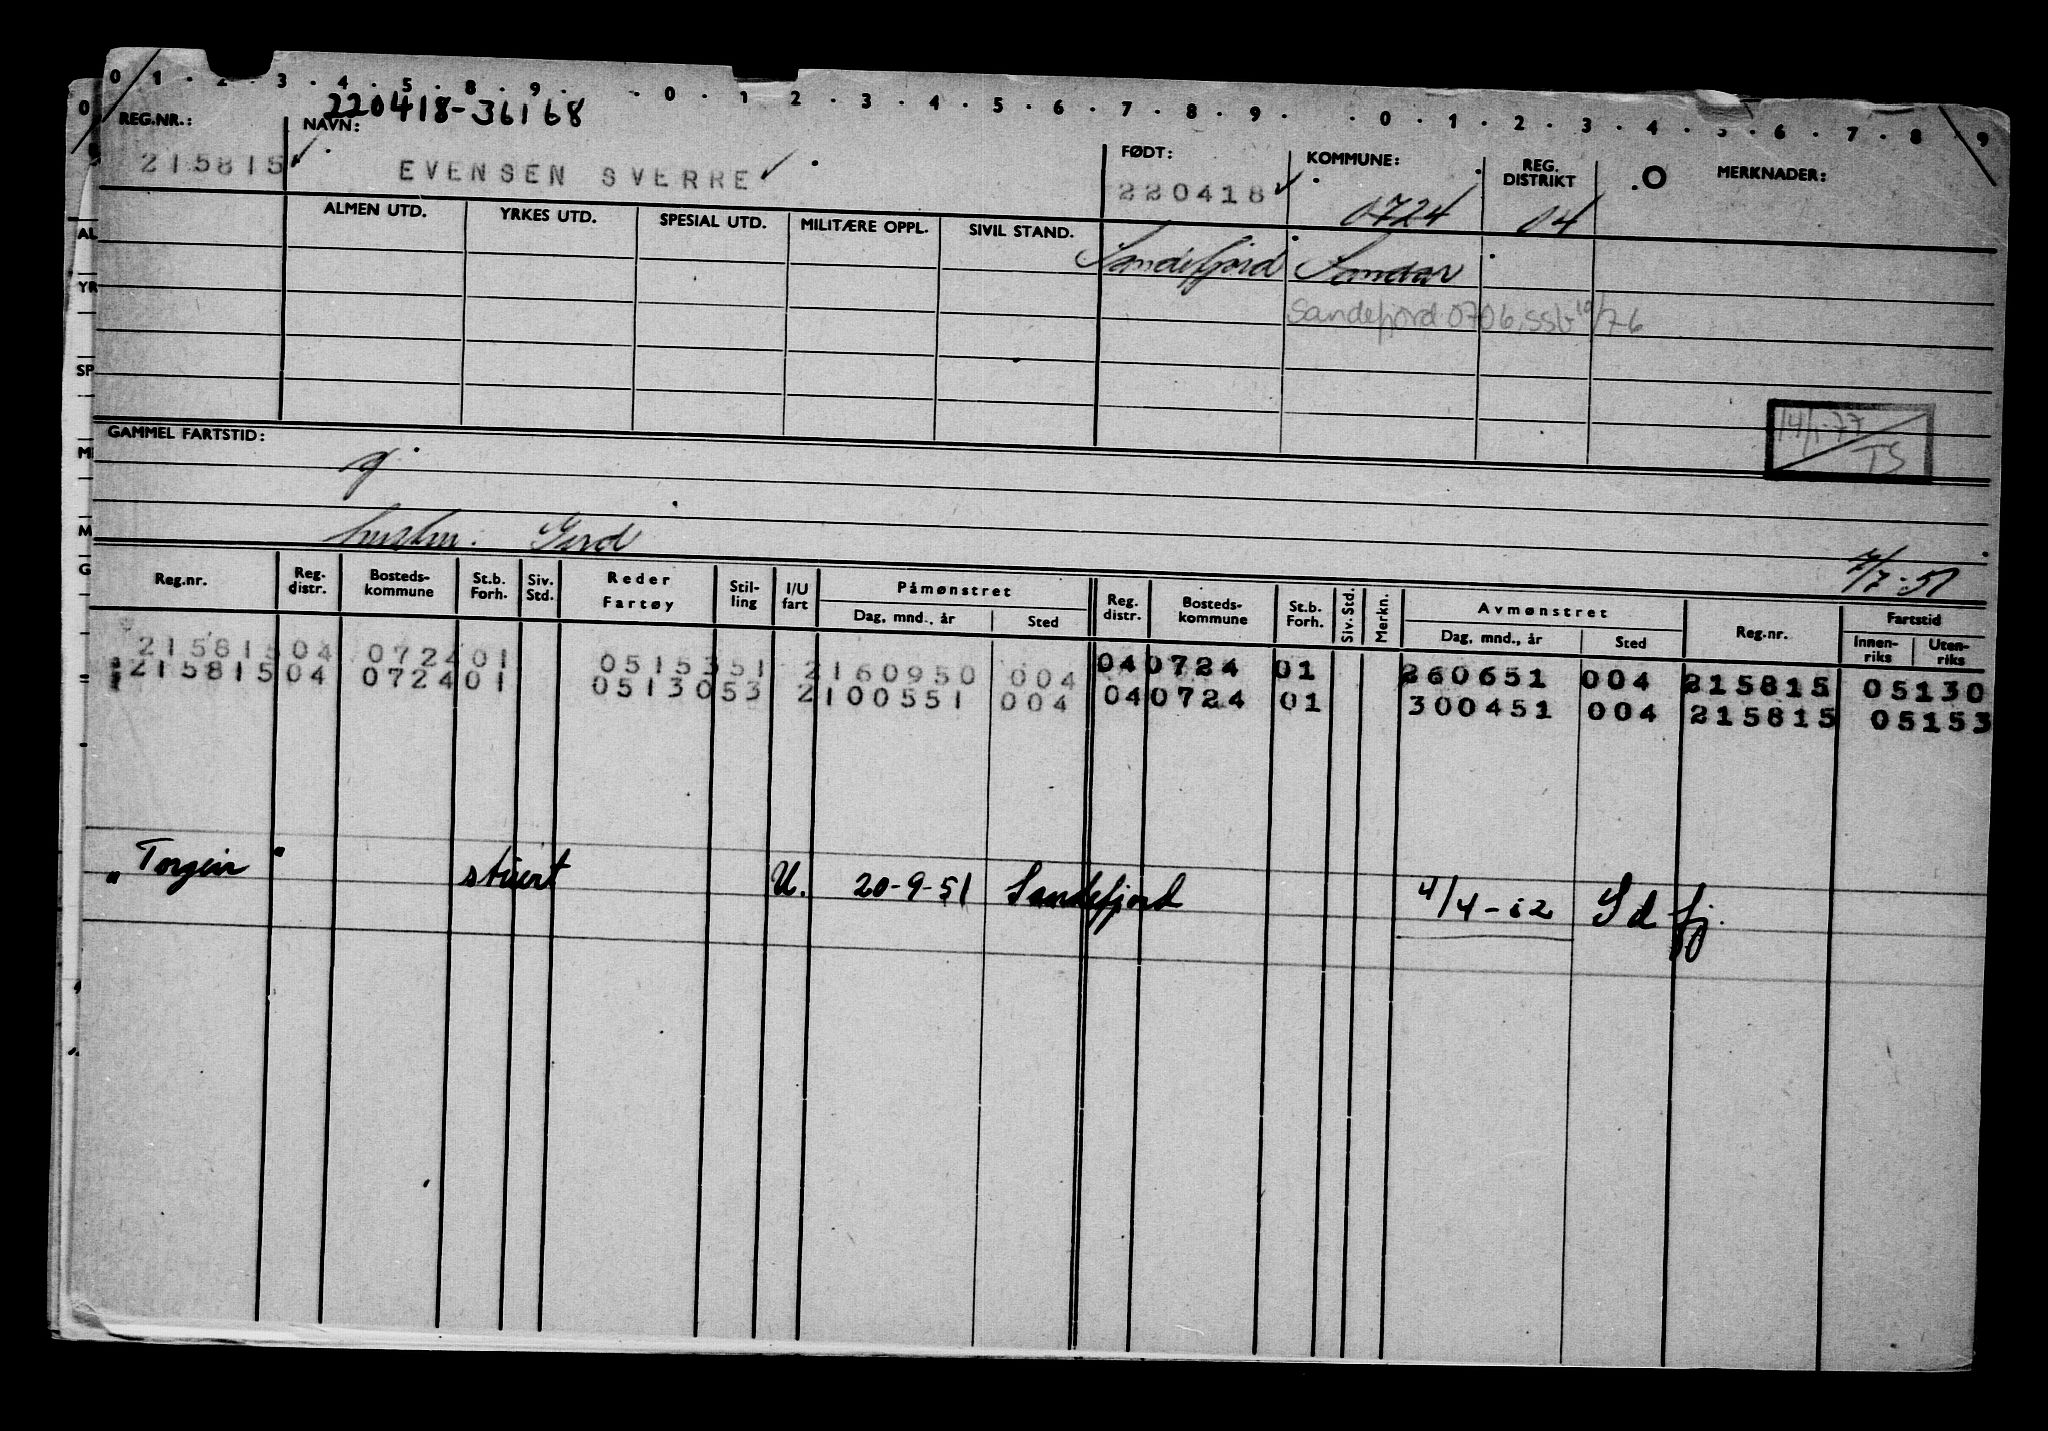 0 1 · 2 · 3 · 4 · 5 · 8 · 9 · · 0 · 1 2 · 3 · 4 · 5 · 6 · 7 · 8 · 9 · · 0 · 1 · 2 · 3 · 4 · 5 · 6 · 7 · 8 9
220418-36168
REG.NR.: NAVN: FØDT: KOMMUNE: REG. DISTRIKT O MERKNADER:
215815 EVENSEN SVERRE 220418 0724 04
ALMEN UTD. YRKES UTD. SPESIAL UTD. MILITÆRE OPPL. SIVIL STAND. Sandefjord Sandar
Sandefjord 0706, ssb 10/76
14/1-77
TS
GAMMEL FARTSTID:
hustru: Gerd
7/7-51
Reg.nr. Reg. distr. Bosteds-kommune St.b. Forh. Siv. Std. Reder Fartøy Stil-ling I/U fart Påmønstret Dag, mnd., år Sted Reg. distr. Bosteds-kommune St.b. Forh. Siv. Std. Merkn. Avmønstret Dag, mnd., år Sted Reg.nr. Fartstid Innen-riks Uten-riks
215815 04 0724 01 05153 51 2 160950 004 04 0724 01 260651 004 215815 05130
215815 04 0724 01 05130 53 2 100551 004 04 0724 01 300451 004 215815 05153
"Torgeir" stuert U. 20-9-51 Sandefjord 4/4-52 Sdfj.